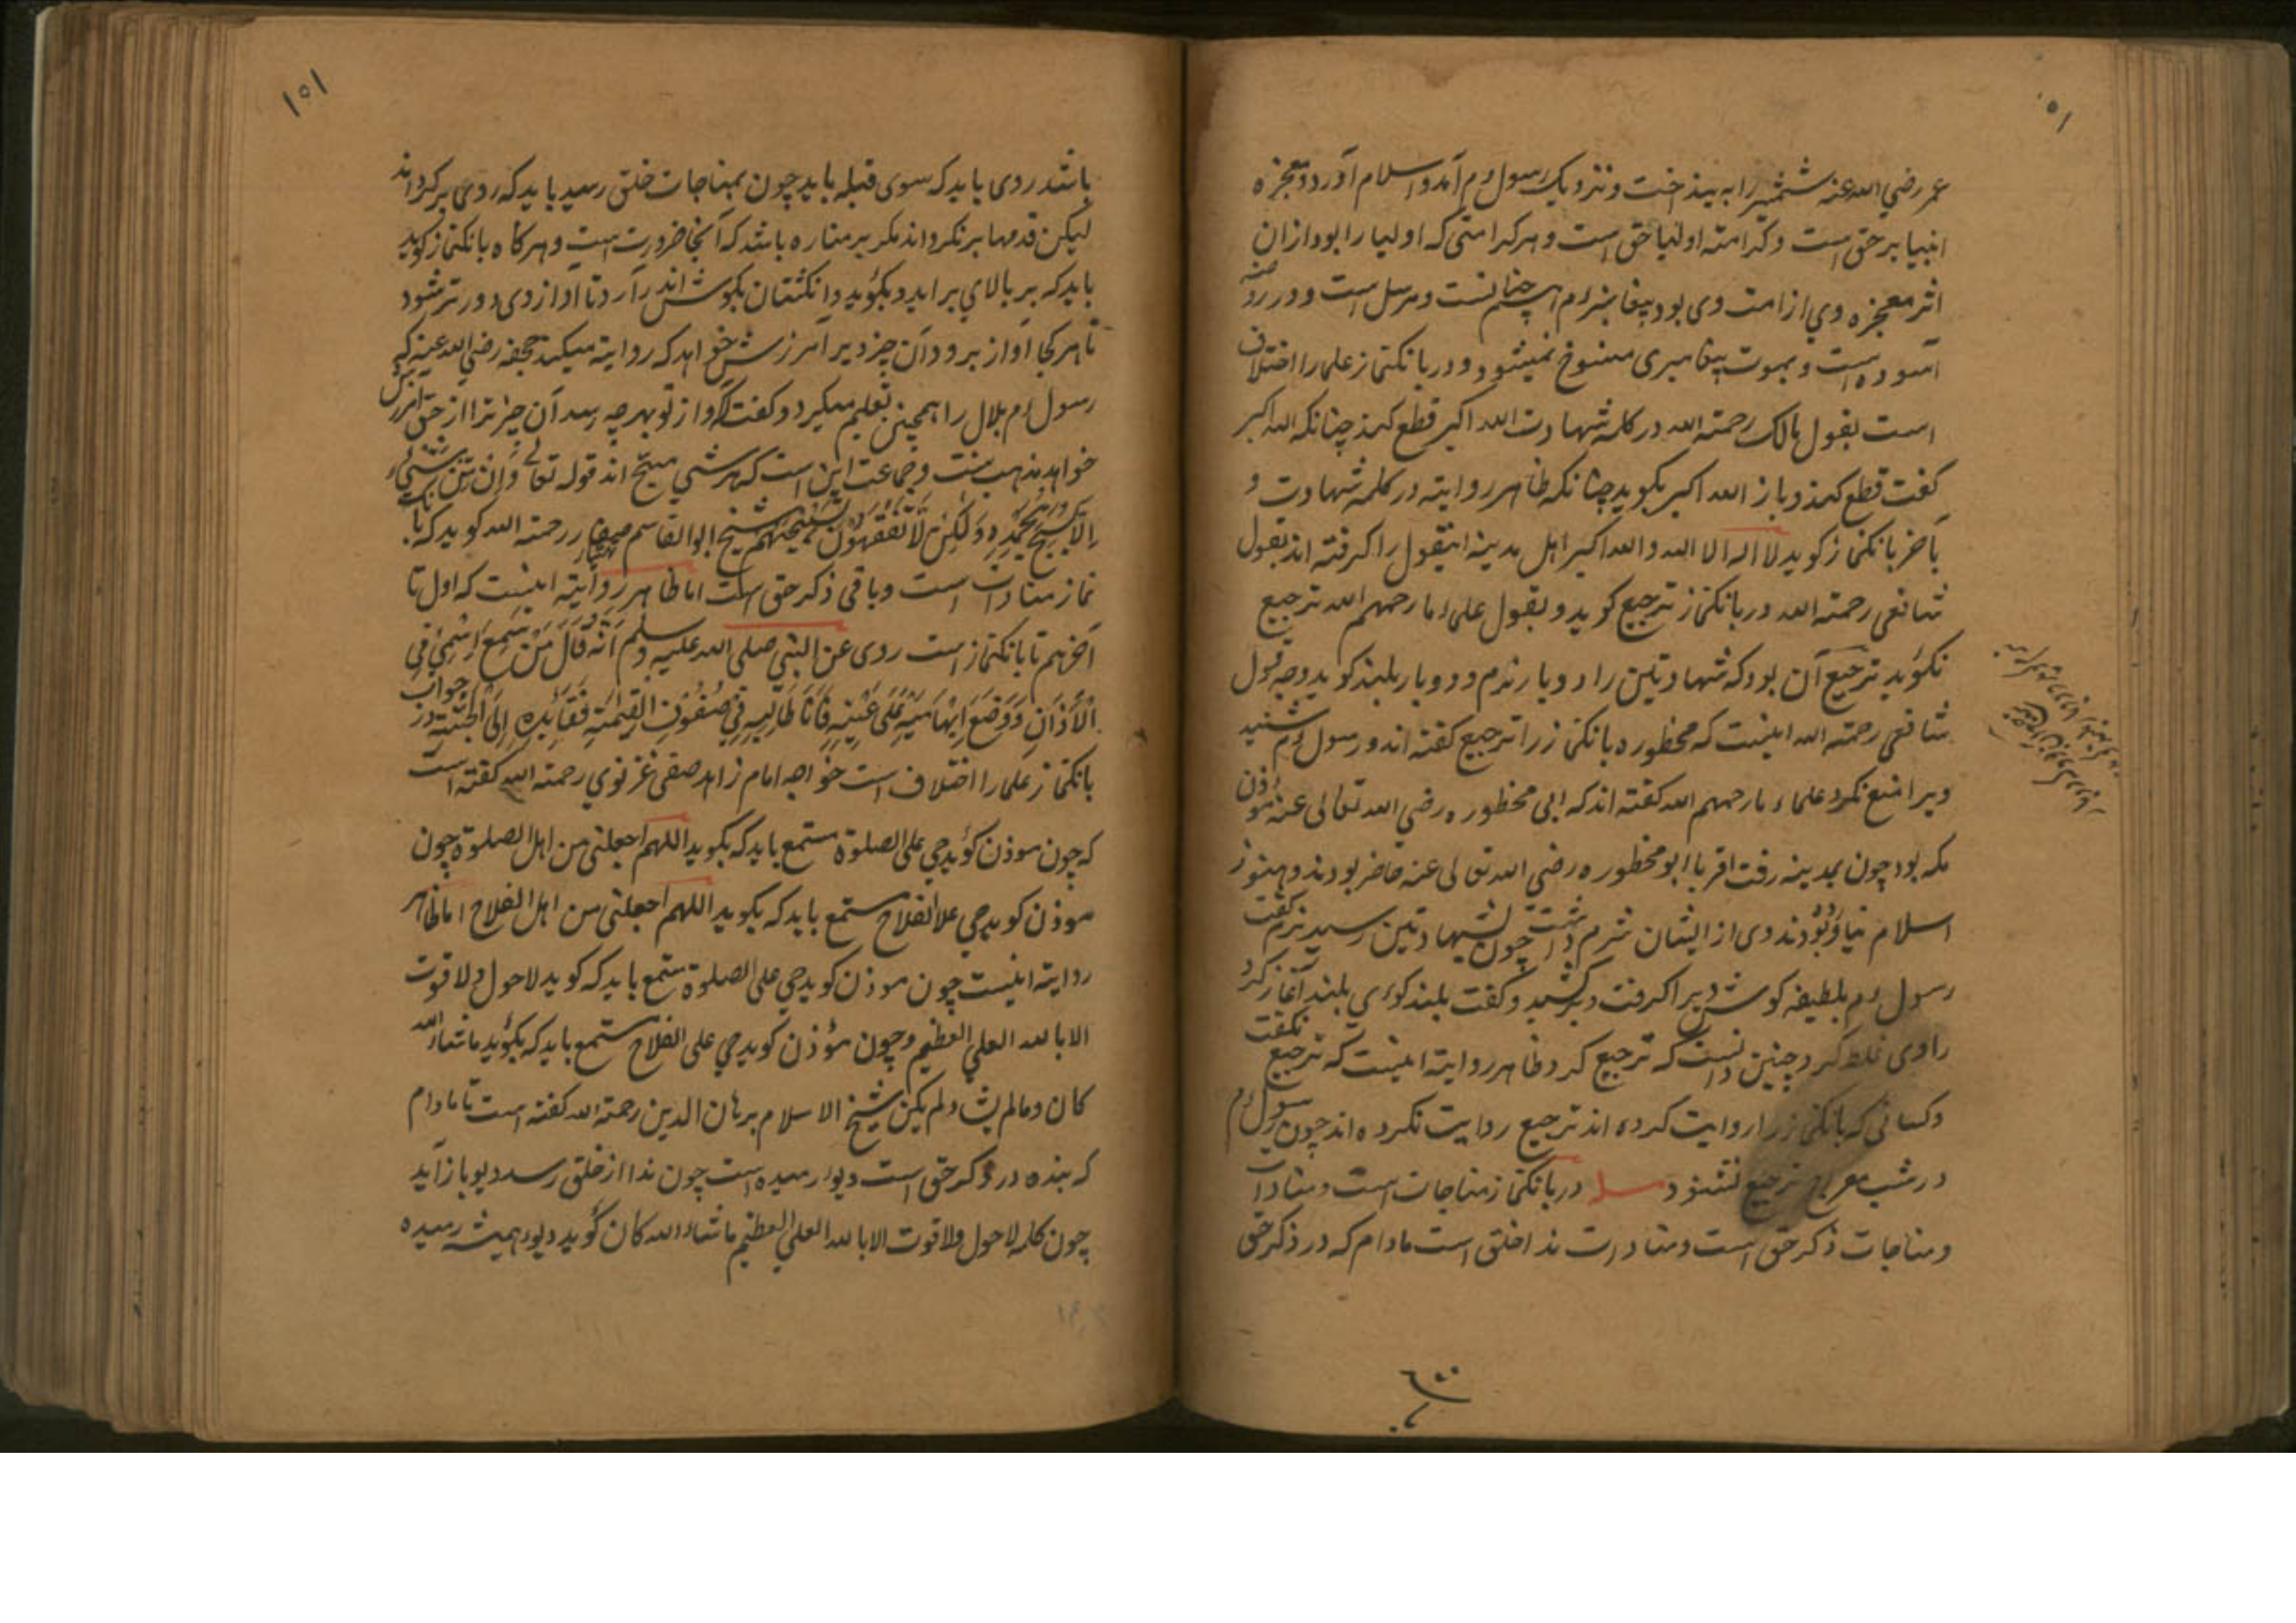 عمر رضي الله عنه شمشیر را به بینداخت و نزدیک رسول ءم آمد و اسلام آورد و معجزه
انبیا بر حق است و کرامته اولیا حق است و هر کرامتی که اولیا را بود از ان
اثر معجزه وي از امت وی بود پیغامبر ءم همچنانست و مرسل است و در روضه
آسوده است و بموت پیغامبری منسوخ نمیشود و در بانکنماز علما را اختلاف
است بقول مالک رحمته الله در کلمه شهادت الله اکبر قطع کند چنانکه الله اکبر
کفت قطع کند و باز الله اکبر بکوید چنانکه ظاهر روایته در کلمه شهادت و
بآخر بانکنماز کوید لا اله الا الله والله اکبر اهل مدینه اینقول را کرفته اند بقول
شافعی رحمته الله در بانکنماز ترجیع کوید و بقول علماء ما رحمهم الله ترجیع
نکوید ترجیع آن بود که شهادتین را دو بار نرم و دو بار بلند کوید وجه قول
شافعی رحمته الله اینست که محظوره بانکنماز را ترجیع کفته اند و رسول ءم شنید
ویرا منع نکرد علماء ما رحمهم الله کفته اند که ابی محظوره رضي الله تعالی عنه موذن
مکه بود چون بمدینه رفت اقربا ابو محظوره رضي الله تعالی عنه حاضر بودند و هنوز
اسلام نیاورده بودند وی از ایشان شرم داشت چون بشهادتین رسید نرم کفت
رسول ءم بلطیفه کوش ویرا کرفت و برکشید و کفت بلند کوی بلند آغاز کرد
راوی غلط کرد چنین دانست که ترجیع کرد ظاهر روایته اینست که ترجیع نکفت
وکسانی که بانکنماز را روایت کرده اند ترجیع روایت نکرده اند چون رسول ءم
در شب معراج ترجیع نشنود مسله در بانکنماز مناجات است و منادات
و مناجات ذکر حق است و منادات ندا خلق است مادام که در ذکر حق
۱۵۱
باشد روی باید که سوی قبله باید چون بمناجات خلق رسید باید که روی برکرداند
لیکن قدمها برنکرداند مکر بر مناره باشد که آنجا ضرورت است و هرکاه بانکنماز کوید
باید که بر بالاي برآید و بکوید و انکشتان بکوش اندر آرد تا آواز وی دورتر شود
تا هر کجا آواز برود آن چیز ویرا آمرزش خواهد که روایته میکند جحفه رضي الله عنه که
رسول ءم بلال را همچنین تعلیم میکرد و کفت آواز تو بهر چه رسد آن چیز ترا از حق آمرزش
خواهد مذهب سنت و جماعت این است که هر شي مسبح اند قوله تعالی وَاِن مِّن شَیْءٍ
اِلَّا یُسَبِّحُ بِحَمْدِهِ وَلٰکِنْ لَّا تَفْقَهُوْنَ تَسْبِیْحَهُمْ شیخ ابو القاسم صفار رحمته الله کوید که بانک
نماز منادات است و باقی ذکر حق است اما ظاهر روایته اینست که اول تا
آخر هم تا بانکنماز است روی عن النبي صلی الله علیه وسلم اَنَّهُ قَالَ مَنْ سَمِعَ اِسْمِيْ فِي
الْاَذَانِ وَوَضَعَ اِبْهَامَیْهِ عَلَی عَیْنَیْهِ فَاَنَا طَالِبُهُ فِي صُفُوفِ الْقِیٰمَةِ وَقَائِدُهُ اِلَی الْجَنَّةِ در جواب
بانکنماز علما را اختلاف است خواجه امام زاهد صفی غزنوي رحمته الله کفته است
که چون موذن کوید حي علی الصلوة مستمع باید که بکوید اللهم اجعلنی من اهل الصلوة چون
موذن کوید حي علا الفلاح مستمع باید که بکوید اللهم اجعلنی من اهل الفلاح اما ظاهر
روایته اینست چون موذن کوید حي علی الصلوة مستمع باید که کوید لاحول ولا قوت
الا بالله العلي العظیم و چون مؤذن کوید حي علی الفلاح مستمع باید که بکوید ماشاء الله
کان ومالم یشاء لم یکن شیخ الاسلام برهان الدین رحمته الله کفته است تا مادام
که بنده در ذکر حق است دیو رمیده است چون ندا از خلق رسد دیو باز آید
چون کلمه لاحول ولا قوت الا بالله العلي العظیم ماشاء الله کان کوید دیو همیشه رمیده